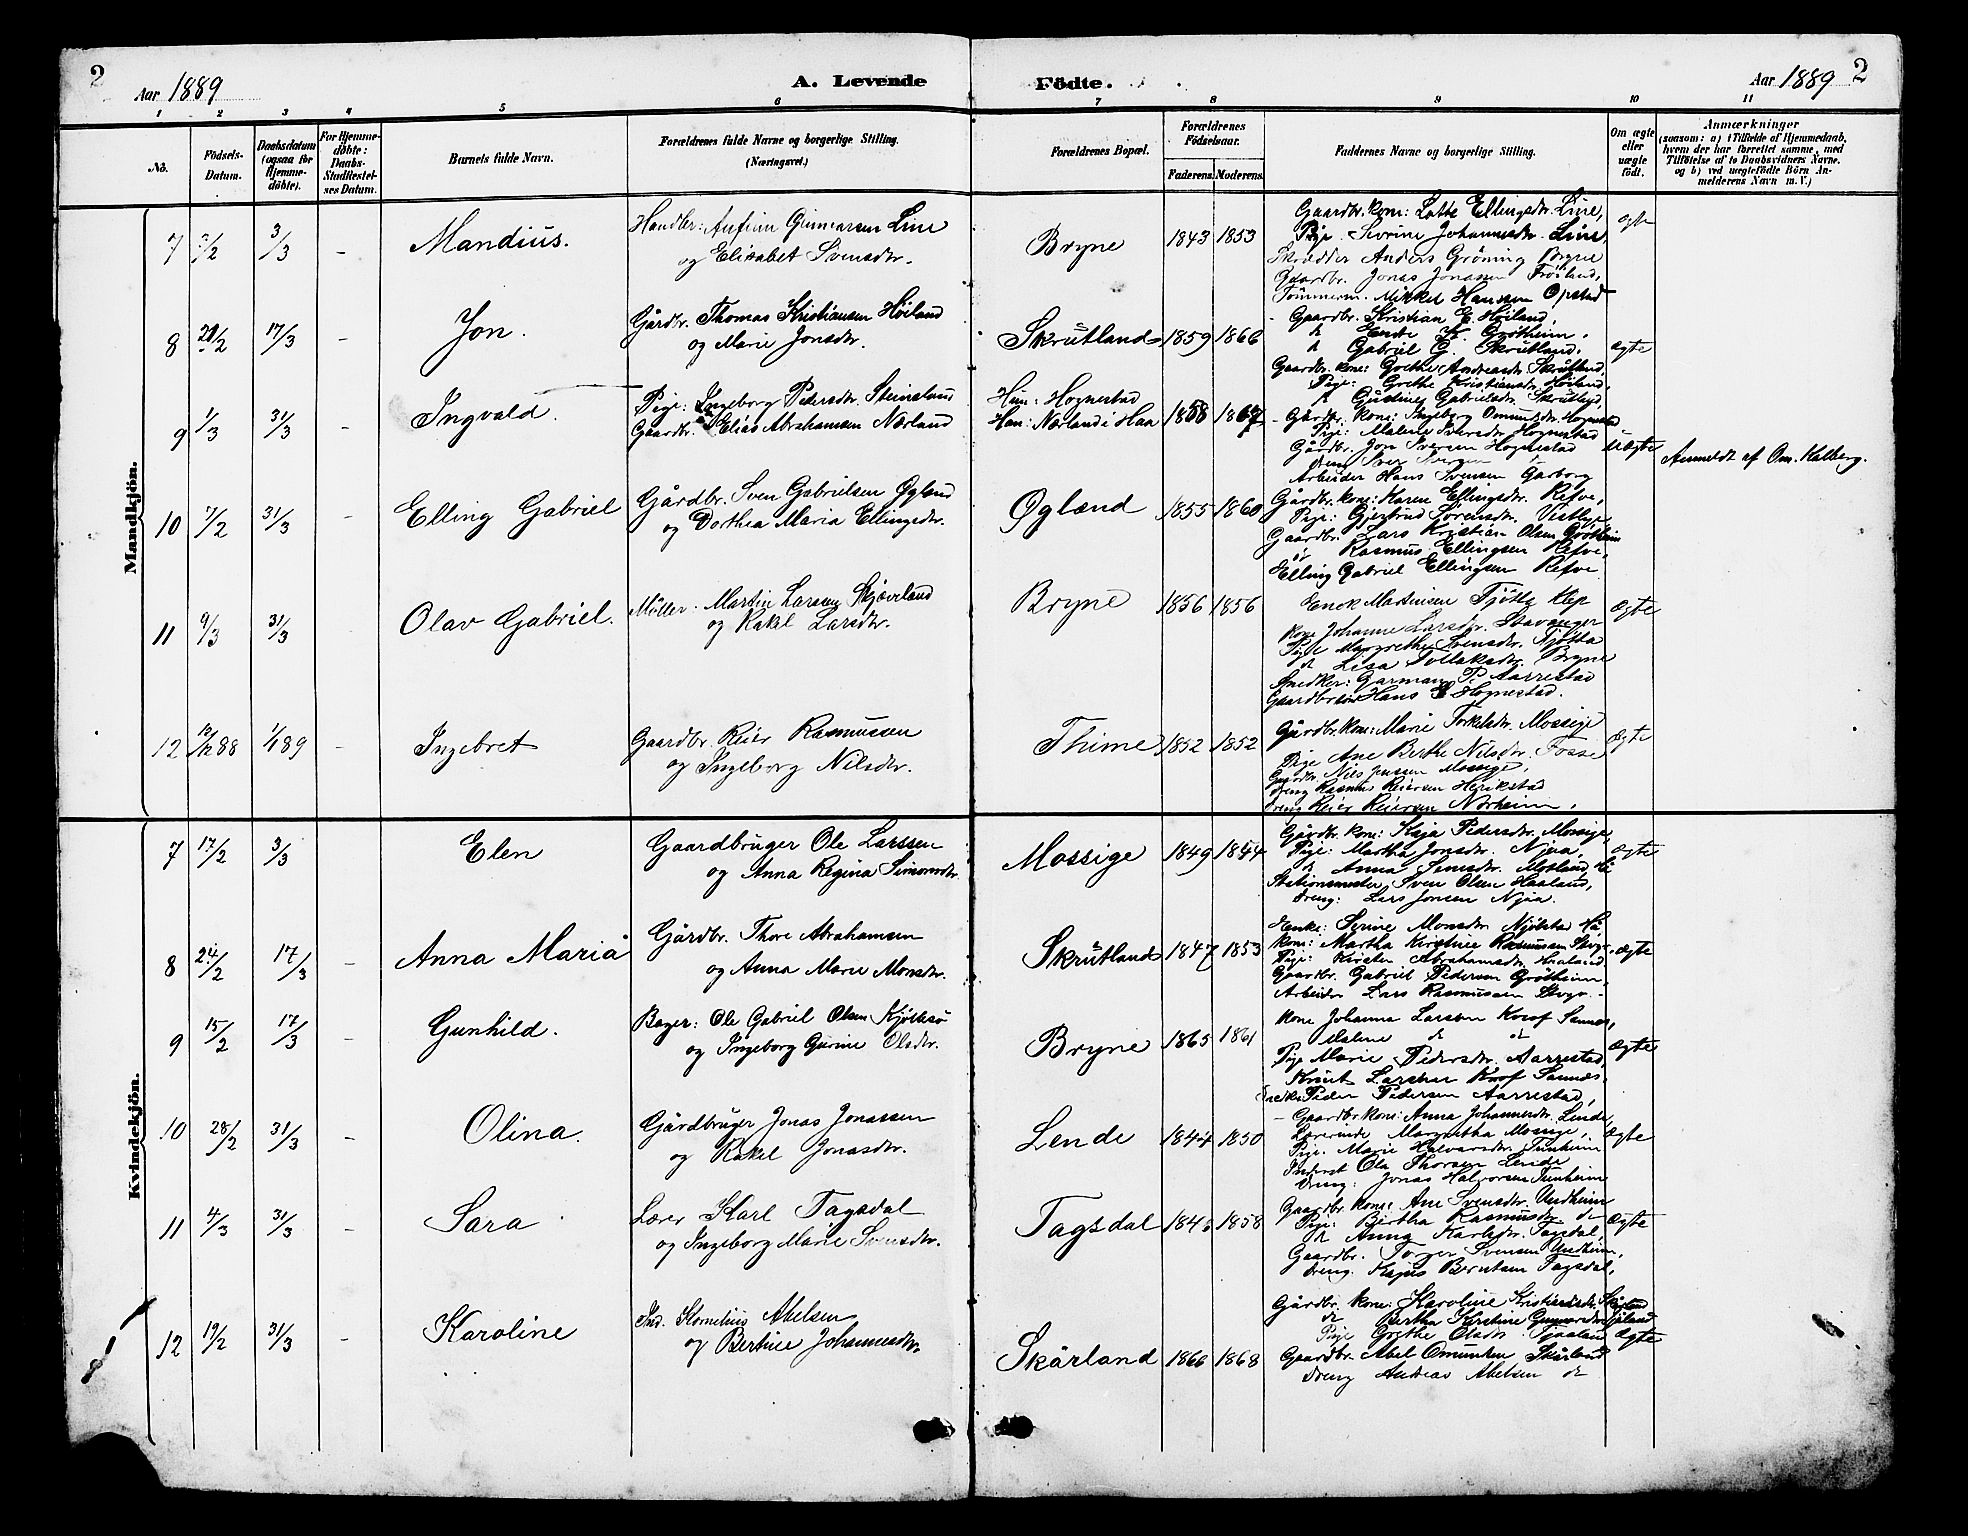 2
Aar 1889
A. Levende
Födte.
Aar 1889
2
1 2 3 4 5 6 7 8 9 10 11
No.
Födsels-
Datum.
Daabsdatum
(ogsaa for
Hjemme-
döbte).
For Hjemme-
döbte:
Daabs-
Stadfæstel-
ses Datum.
Barnets fulde Navn.
Forældrenes fulde Navne og borgerlige Stilling.
(Næringsvei.)
Forældrenes Bopæl.
Forældrenes
Födselsaar.
Faderens. Moderens.
Faddernes Navne og borgerlige Stilling.
Om ægte
eller
uægte
födt.
Anmærkninger
(saasom: a) i Tilfælde af Hjemmedaab,
hvem der har forrettet samme, med
Tilföielse af to Daabsvidners Navne.
og b) ved uægtefödte Börn An-
melderens Navn m. V.)
Mandkjön.
7 2/2 3/3 - Mandius.
Handler: Anfinn Gunnarsen Line
og Elisabet Svensdtr.
Bryne 1843 1853
Gaardbr. kone: Lotte Ellingsdtr. Line,
Pige Severine Johannesdtr. Line,
Skrædder Anders Gröning Bryne
Gaardbr. Jonas Jonassen Fröiland,
Tömmerm. Mikkel Hanssen Opstad
ægte
8 20/2 17/3 - Jon.
Gårdbr. Thomas Kristiansen Höiland
og Marie Jonsdtr.
Skrutland 1859 1866
Gaardbr. Kristian E. Höiland,
Gabriel G. Skrutland.
Gaardbr. kone: Grethe Andreasdtr. Skrutland,
Pige: Grethe Kristiansdtr. Höiland,
Gabrielsdtr. Skrutland
ægte
9 1/3 31/3 - Ingvald.
Pige: Ingeborg Pedersdtr. Steinsland
Gaardbr. Elias Abrahamsen Nærland
Hun: Hognestad
Han: Nærland i Haa
1858 1867
Gårdbr. kone: Ingeborg Omundsdtr. Hognestad
Pige: Malene Iversdtr. Hognestad
Gårdbr. Jon Iversen Hognestad
Dreng Iver Iversen
Arbeider Hans Svensen Garborg
uægte
Anmeldt af Om. Kalberg.
10 7/2 31/3 - Elling Gabriel
Gårdbr. Sven Gabrielsen Øgland
og Dorthea Maria Ellingsdtr.
Øgland 1855 1860
Gårdbr. kone: Karen Ellingsdtr. Refve,
Pige: Gjertrud Sörensdtr. Vestlye
Gaardbr. Lars Kristian Olsen Grötheim
do Rasmus Ellingsen Refve,
Elling Gabriel Ellingsen Refve
11 9/3 31/3 Olav Gabriel.
Möller. Martin Larsen Skjæveland
og Rakel Larsdtr.
Bryne 1856 1856
Enok Martinsen Tjötta Klep
Kone Johanne Larsdtr. Stavanger
Pige Margrethe Svensdtr. Tjötta
do Lisa Tollaksdtr. Bryne
Snedker: Garman P. Aarrestad
Gaardbrsön Hans E Hognestad.
Ægte
12 12/12 88 1/1 89 - Ingebret
Gaardbr. Reier Rasmussen
og Ingeborg Nilsdtr.
Thime 1852 1852
Gårdbr. kone: Marie Torkelsdtr. Mossige
Pige Ane Berthe Nilsdtr. Fosse
Gaardbr. Nils Mossige,
Dreng Rasmus Reiersen Herikstad
Dreng Reier Reiersen Norheim,
Ægte
Kvindekjön.
7 17/2 3/3 Elen
Gaardbruger Ole Larssen
og Anna Regina Simonsdtr.
Mossige 1849 1854
Gårdbr. kone: Kaja Pedersdtr. Mossige,
Pige: Martha Jonsdtr. Njaa,
Stationsmester Sven Olsen Haaland,
Dreng: Lars Jonsen Njaa.
ægte
8 24/2 17/3 - Anna Maria
Gårdbr. Thore Abrahamsen
og Anna Marie Monsdtr.
Skrutland 1847 1853
Enke: Serine Monsdtr. Njölstad Hå,
kone: Martha Kirstine Rasmussen
Pige: Kirsten Abrahamsdtr. Haaland
Gaardbr. Gabriel Pedersen Gröttheim,
Arbeider Lars Rasmussen
Ægte
9 15/2 17/3 - Gunhild.
Bager: Ole Gabriel Olsen
og Ingeborg Gurine Olsdtr.
Bryne 1865 1861
Kone Johanna Larsen Korf Sannes,
Malene do do
Pige Marie Pedersdtr. Aarrestad,
Knut Larsen Korf Sannes.
Snedker Peder Pedersen Aarrestad,
Ægte
10 28/2 31/3 - Olina.
Gårdbruger Jonas Jonassen
og Rakel Jonasdtr.
Lende 1844 1850
Gaardbr. kone: Anna Johannesdtr. Lende
Lærerinde Margretha Mossige,
Pige. Marie Halvorsdtr. Tunheim
Inderst Ole Thorsen Lende
Dreng: Jonas Halvorsen Tunheim
Ægte
11 4/3 31/3 - Sara
Lærer Karl Tagsdal
og Ingeborg Marie Svensdtr.
Tagsdal 1845 1858
Gaardbr. kone: Ane Svensdtr. Undheim
Pige: Bertha Rasmusdtr. do
do Anna Karlsdtr. Tagsdal,
Gaardbr. Torger Svensen Undheim,
Dreng. Kapus Berntsen Tagsdal,
Ægte
12 19/2 31/3 - Karoline
Ind. Kornelius Abelsen
og Bertine Johannesdtr.
Skårland 1866 1868
Gårdbr. kone: Karoline Kristiansdtr.
do Bertha Kirstine Gunnarsdtr.
Pige Grethe Olsdtr. Tjaaland
Gaardbr. Abel Omundsen Skårland
Dreng Andreas Abelsen do
Ægte